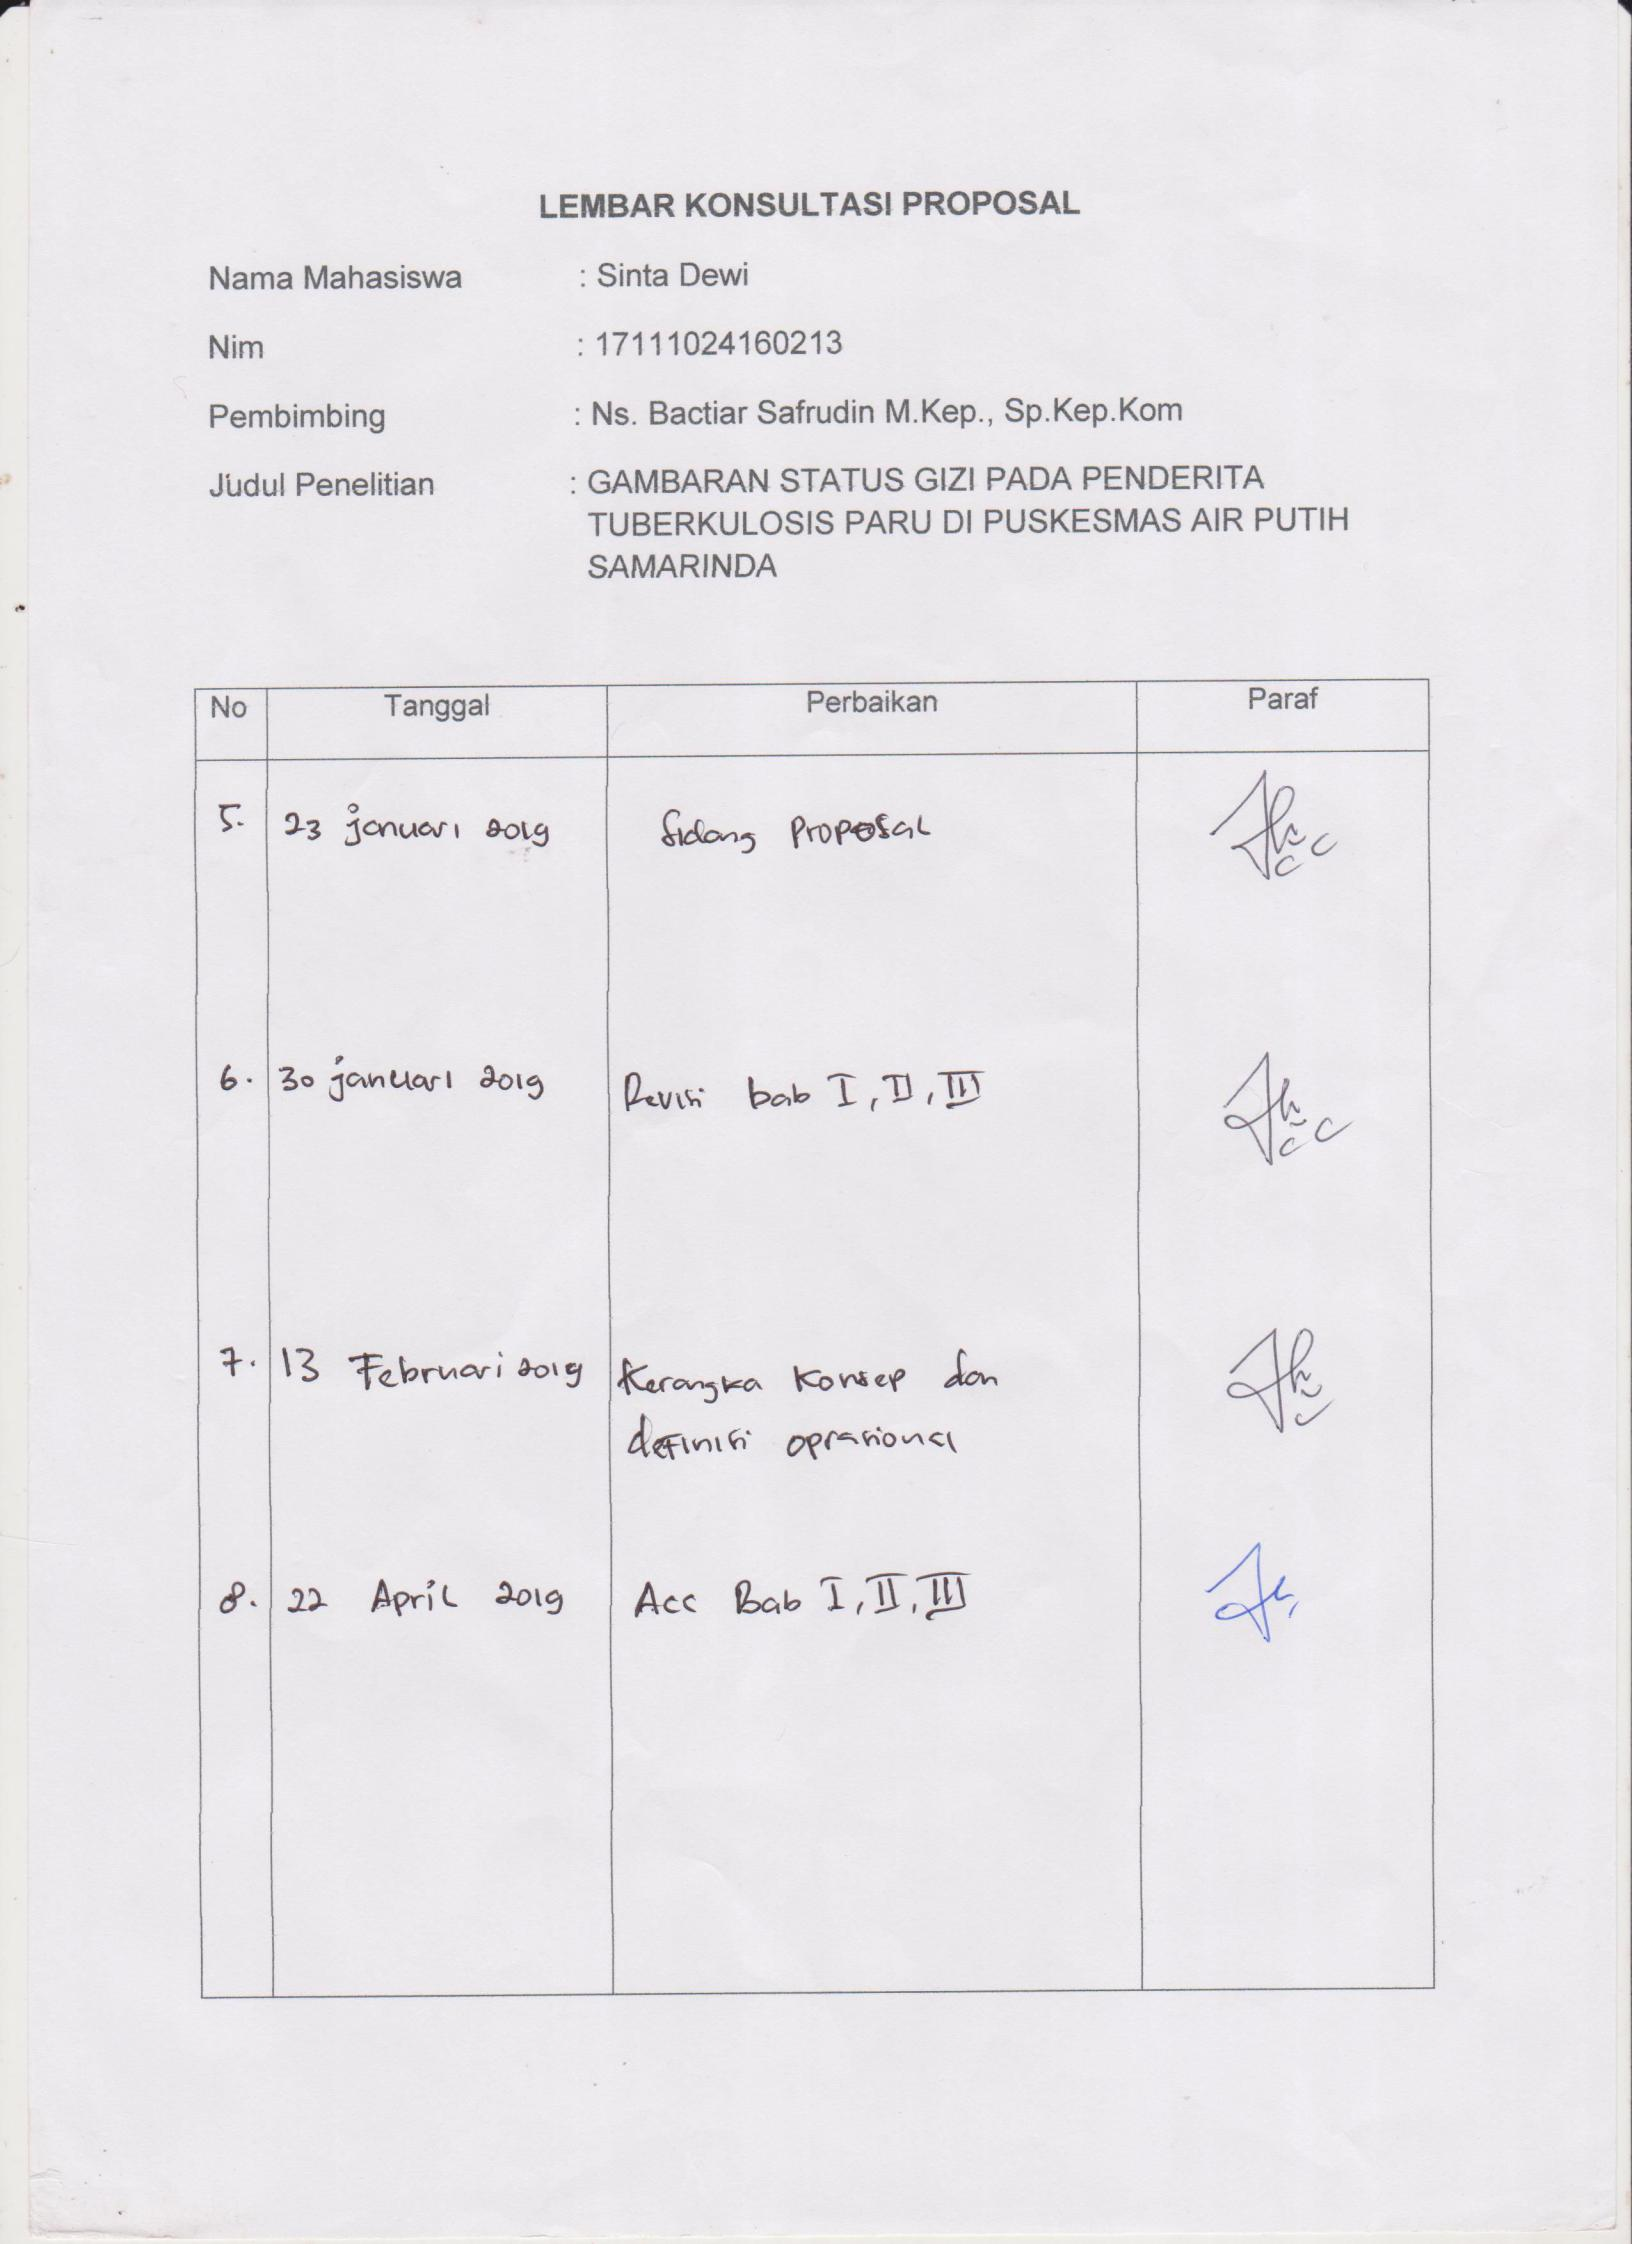 LEMBAR KONSULTASI PROPOSAL
Nama Mahasiswa : Sinta Dewi
Nim : 17111024160213
Pembimbing : Ns. Bactiar Safrudin M.Kep., Sp.Kep.Kom
Judul Penelitian : GAMBARAN STATUS GIZI PADA PENDERITA
TUBERKULOSIS PARU DI PUSKESMAS AIR PUTIH
SAMARINDA
No Tanggal Perbaikan Paraf
5. 23 januari 2019 Sidang Proposal
6. 30 januari 2019 Revisi bab I, II, III
7. 13 Februari 2019 Kerangka Konsep dan
definisi oprasional
8. 22 April 2019 Acc Bab I, II, III